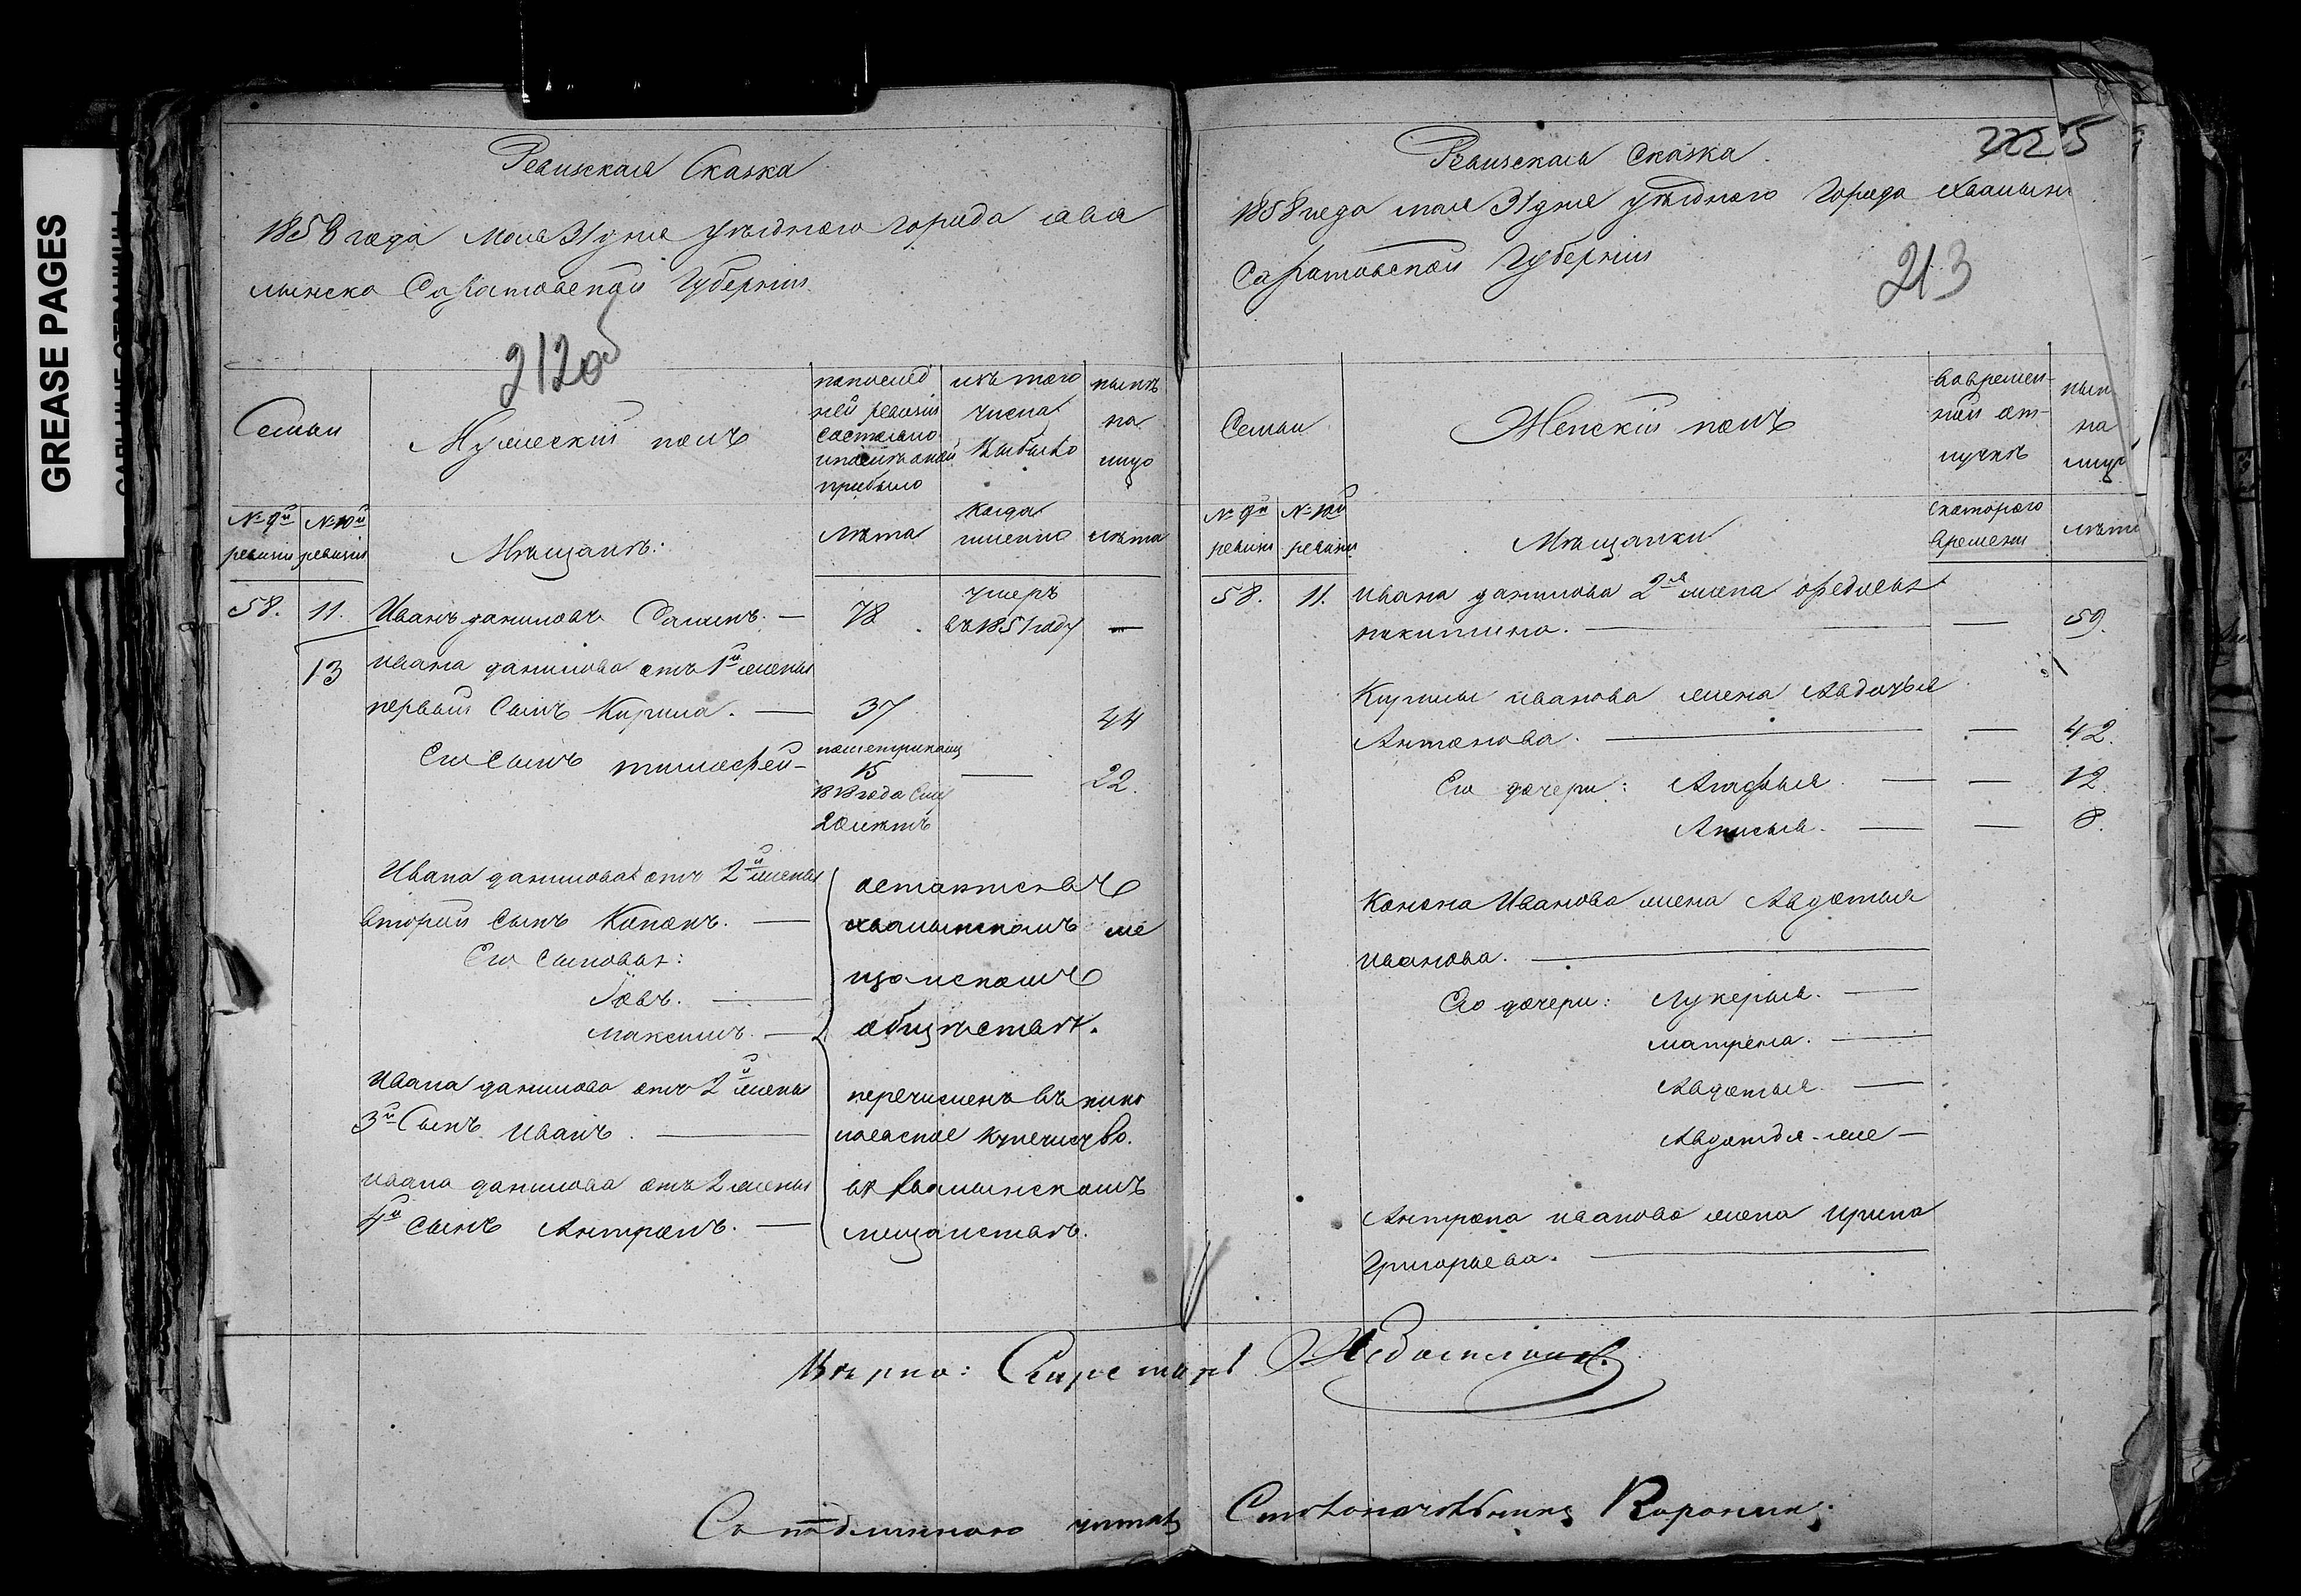 GREASE PAGES
Ревизская Сказка
1858 года Мая 31 дня уѣзднаго города Хва
лынска Саратовской Губерніи
212об
Семьи
Мужескій полъ
по послѣд
ней ревизіи
состояло
и послѣ оной
прибыло
изъ того
числа
выбыло
нынѣ
на
лицо
№ 9й
ревизіи
№ 10й
ревизіи
Мѣщанъ:
лѣта
когда
именно
лѣта
58. 11. Иванъ даниловъ — 78 умеръ
въ 1851 году —
13 ивана данилова отъ 1й жены
первый сынъ Кирила. — 37 44
Его сынъ тимофей — 15 — 22.
20 лѣтъ
Ивана данилова отъ 2й жены
второй сынъ Кононъ. —
Его сыновья:
Іовъ. —
максимъ. —
хвалынскомъ ме
щанскомъ
обществѣ.
Ивана данилова отъ 2й жены
3й Сынъ Иванъ. —
перечисленъ въ
купечество.
ивана данилова отъ 2 жены
4й сынъ Антропъ. —
въ хвалынскомъ
мещанствѣ.
Ревизская Сказка.
2225
1858 года мая 31 дня уѣзднаго Города Хвалын
Саратовской Губерніи
213
Семьи
Женскій полъ
во времен-
ной от-
лучкѣ
нын
на
лицо
№ 9й
ревизіи
№ 10й
ревизіи
Мѣщанки
с котораго
времени
лѣта
58. 11. ивана данилова 2я жена Федосья
никитина. — — 59.
Кирилы иванова жена Авдотья
Антонова. — — 42.
Его дочери: Агафья. — — 12.
Анисья. — — 8.
Конона Иванова жена Авдотья
иванова. —
Его дочери: Лукерья. —
матрена. —
Авдотья. —
Антропа иванова жена Ирина
Григорьева. —
Вѣрно: Секретарь
Съ подлиннымъ читалъ Столоначальникъ Воронинъ